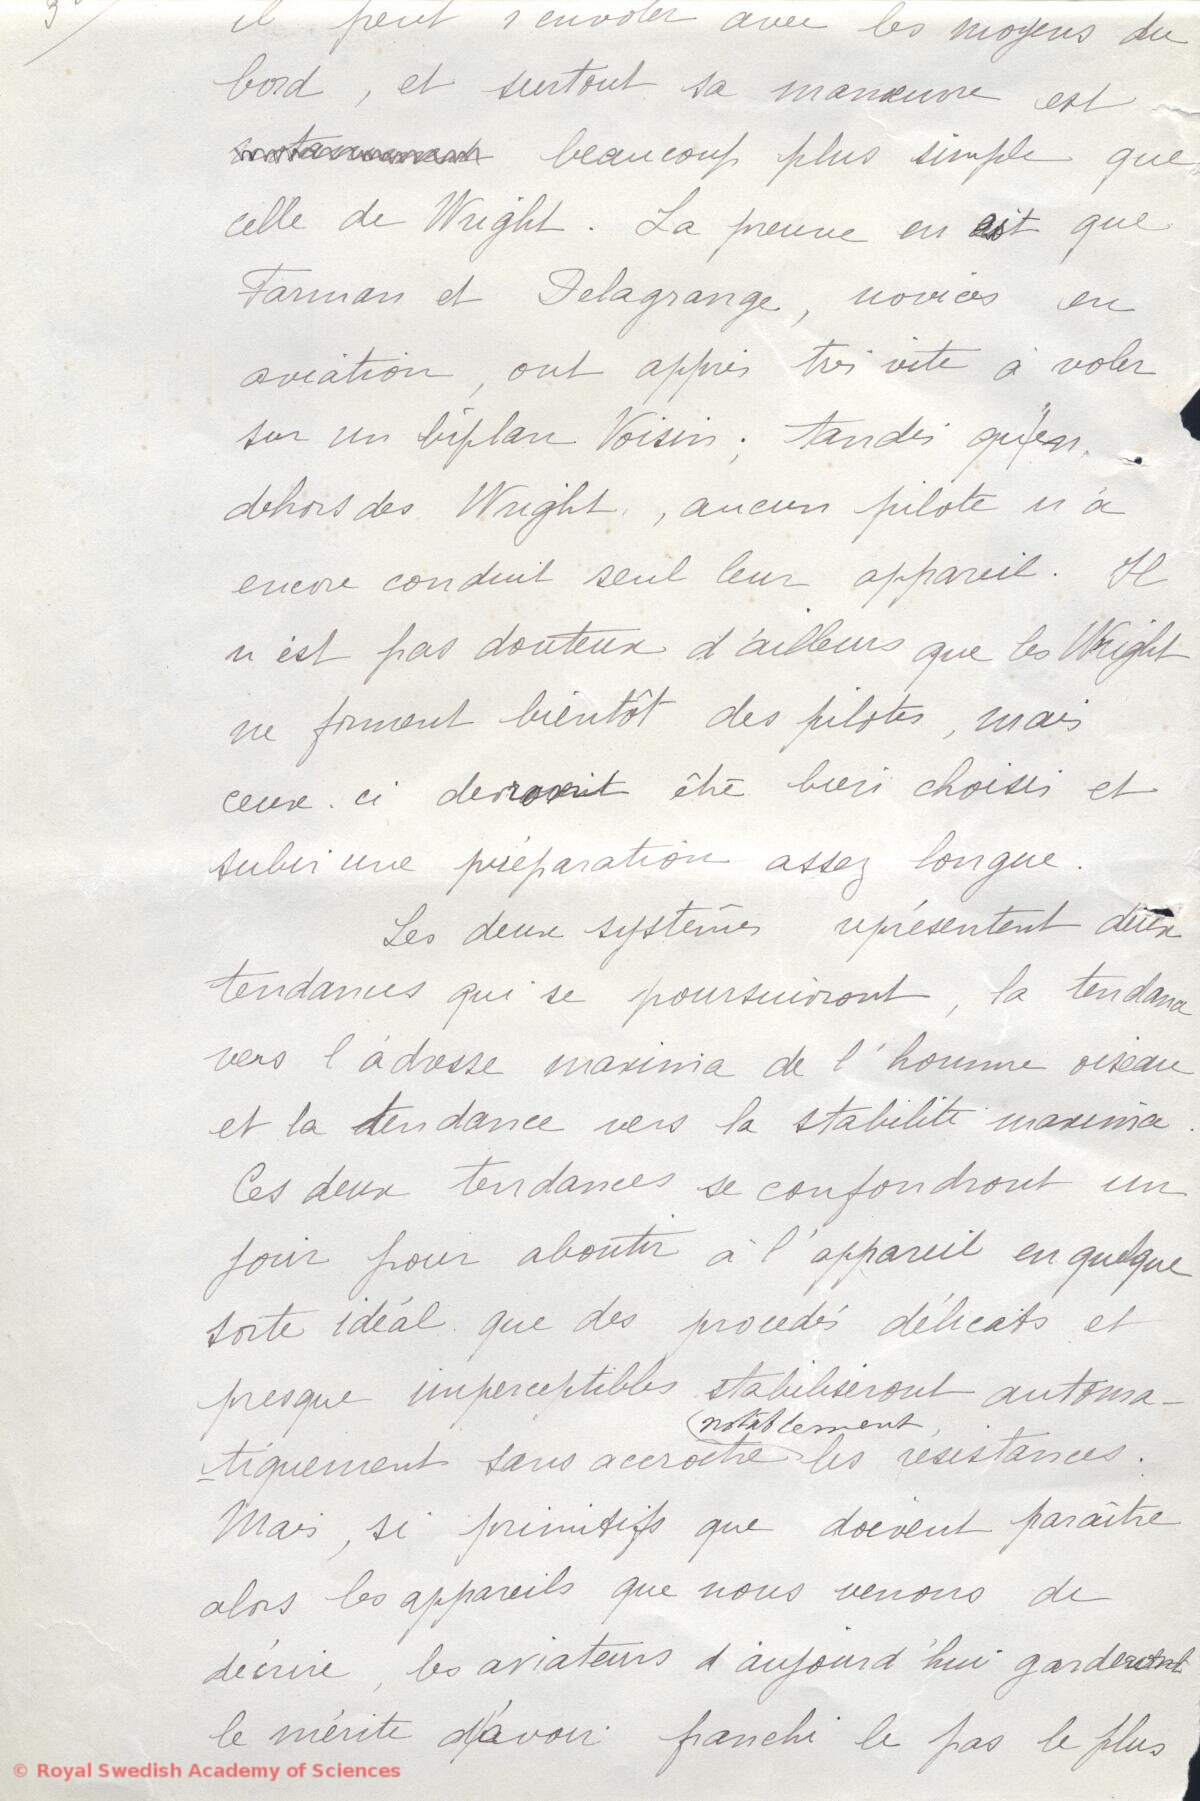 3
il peut s'envoler avec les moyens du
bord, et surtout sa manœuvre est
beaucoup plus simple que
celle de Wright. La preuve en est que
Farman et Delagrange, novices en
aviation, ont appris très vite à voler
sur un biplan Voisin; tandis qu'en
dehors des Wright, aucun pilote n'a
encore conduit seul leur appareil. Il
n'est pas douteux d'ailleurs que les Wright
ne forment bientôt des pilotes, mais
ceux-ci devront être bien choisis et
subir une préparation assez longue.
Les deux systèmes représentent deux
tendances qui se poursuivront, la tendance
vers l'adresse maxima de l'homme oiseau
et la tendance vers la stabilité maxima.
Ces deux tendances se confondront un
jour pour aboutir à l'appareil en quelque
sorte idéal que des procédés délicats et
presque imperceptibles stabiliseront automa-
notablement
tiquement sans accroître les résistances.
Mais, si primitifs que doivent paraître
alors les appareils que nous venons de
décrire, les aviateurs d'aujourd'hui garderont
le mérite d'avoir franchi le pas le plus
© Royal Swedish Academy of Sciences